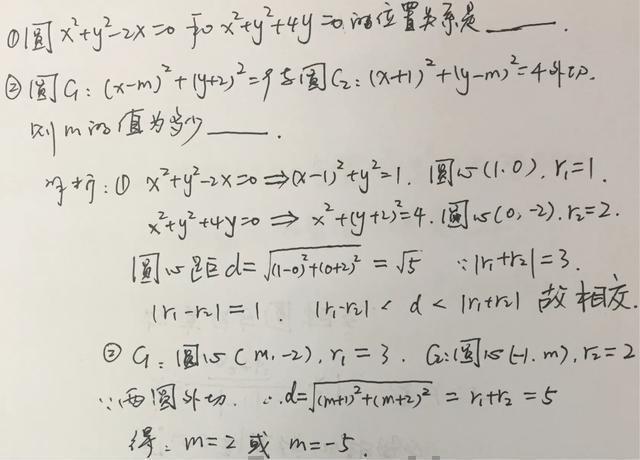 ①圆 x²+y²-2x=0 和 x²+y²+4y=0 的位置关系是______.
②圆C₁: (x-m)²+(y+2)²=9与圆C₂: (x+1)²+(y-m)²=4外切.
则m的值为多少______.
分析: ① x²+y²-2x=0 ⇒(x-1)²+y²=1. 圆心(1.0). r₁=1.
x²+y²+4y=0 ⇒ x²+(y+2)²=4. 圆心(0,-2). r₂=2.
圆心距d=√((1-0)²+(0+2)²) = √5 ∵|r₁+r₂|=3.
|r₁-r₂|=1. |r₁-r₂| < d < |r₁+r₂| 故相交.
② C₁: 圆心(m.-2), r₁=3. C₂:圆心(-1.m), r₂=2
∵两圆外切. ∴d=√((m+1)²+(m+2)²) = r₁+r₂ = 5
得: m=2 或 m=-5.